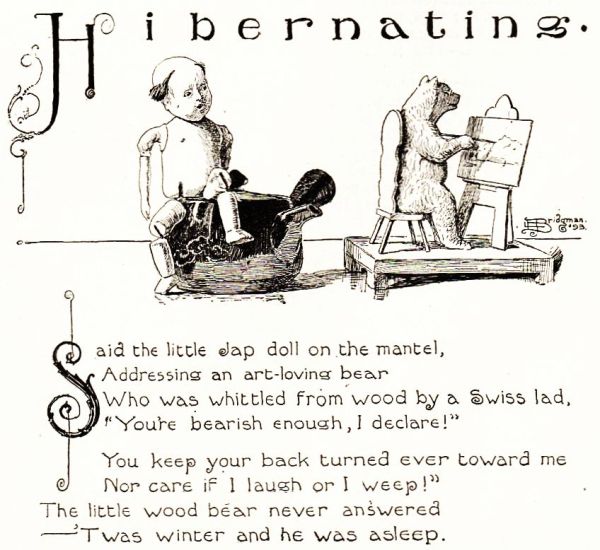 Hibernating.
Bridgman.
'93.
Said the little Jap doll on the mantel,
Addressing an art-loving bear
Who was whittled from wood by a Swiss lad,
"You're bearish enough, I declare!"
You keep your back turned ever toward me
Nor care if I laugh or I weep!"
The little wood bear never answered
—'Twas winter and he was asleep.